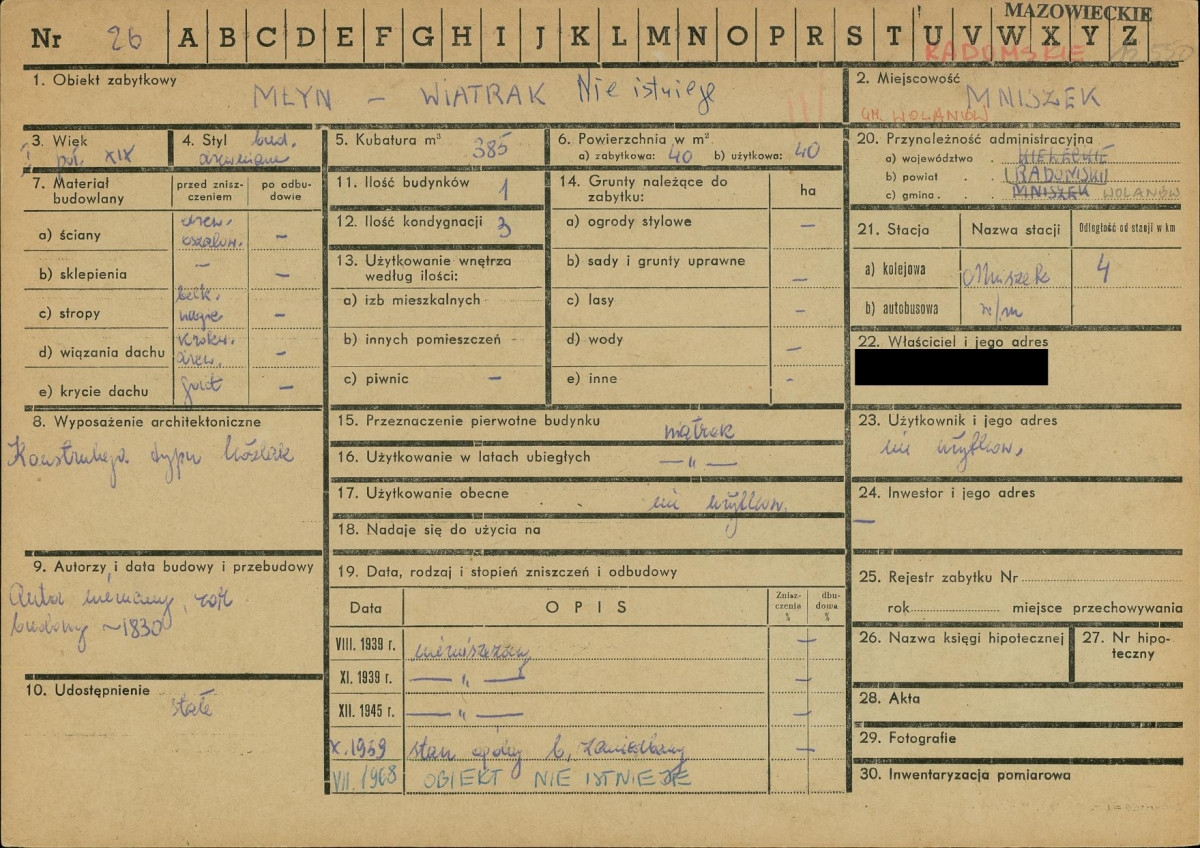 MAZOWIECKIE
Nr 26 A B C D E F G H I J K L M N O P R S T U V W X Y Z
RADOMSKIE
1. Obiekt zabytkowy
MŁYN – WIATRAK Nie istnieje
2. Miejscowość
MNISZEK
GM. WOLANÓW
3. Wiek
poł. XIX
4. Styl bud.
drewniane
5. Kubatura m³ 385
6. Powierzchnia w m²
a) zabytkowa: 40 b) użytkowa: 40
7. Materiał budowlany
przed zniszczeniem
po odbudowie
a) ściany drew. oszalow. –
b) sklepienia – –
c) stropy belk. nagie –
d) wiązania dachu krokw. drew. –
e) krycie dachu gont –
8. Wyposażenie architektoniczne
Konstrukcja typu koźlak
9. Autorzy i data budowy i przebudowy
Autor nieznany, rok
budowy ~1830
10. Udostępnienie
stałe
11. Ilość budynków 1
12. Ilość kondygnacji 3
13. Użytkowanie wnętrza
według ilości:
a) izb mieszkalnych
b) innych pomieszczeń
c) piwnic –
14. Grunty należące do
zabytku:
ha
a) ogrody stylowe –
b) sady i grunty uprawne –
c) lasy
d) wody –
e) inne -
15. Przeznaczenie pierwotne budynku wiatrak
16. Użytkowanie w latach ubiegłych — „ —
17. Użytkowanie obecne nie użytkow.
18. Nadaje się do użycia na
19. Data, rodzaj i stopień zniszczeń i odbudowy
Data
OPIS
Zniszczenia %
dbudowa %
VIII. 1939 r. niezniszczony –
XI. 1939 r. — „ — –
XII. 1945 r. — „ — –
X. 1959 stan ogólny b. zaniedbany –
VII. 1968 OBIEKT NIE ISTNIEJE
20. Przynależność administracyjna
a) województwo . KIELECKIE
b) powiat . RADOMSKI
c) gmina . MNISZEK WOLANÓW
21. Stacja
Nazwa stacji
Odległość od stacji w km
a) kolejowa Mniszek 4
b) autobusowa n/m
22. Właściciel i jego adres
23. Użytkownik i jego adres
nie użytkow.
24. Inwestor i jego adres
—
25. Rejestr zabytku Nr
rok miejsce przechowywania
26. Nazwa księgi hipotecznej
27. Nr hipoteczny
28. Akta
29. Fotografie
30. Inwentaryzacja pomiarowa